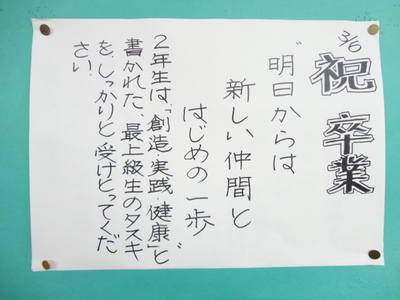 3/6
祝 卒業
"明日からは
新しい仲間と
はじめの一歩"
2年生は、「創造・実践・健康」と
書かれた、最上級生のタスキ
を、しっかりと受けとってくだ
さい。